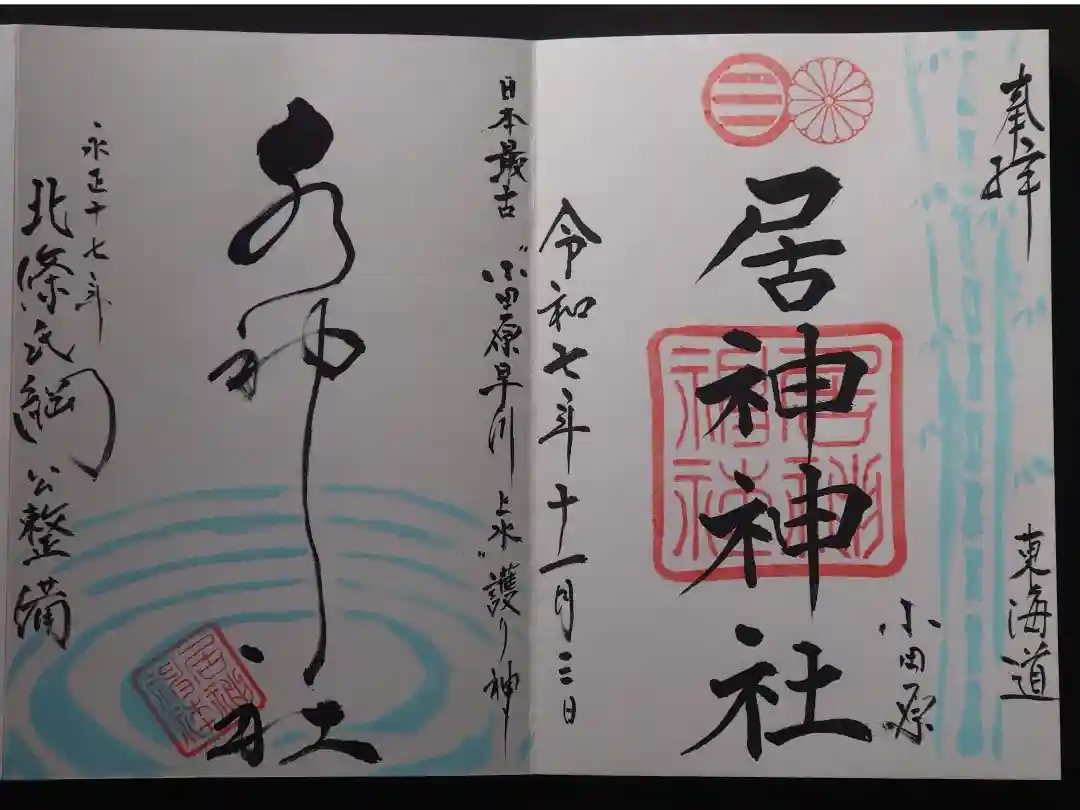 奉拝
東海道
小田原
居神神社
令和七年十一月二日
日本最古 "小田原早川上水" 護り神
水神社
永正十七年
北條氏綱公整備